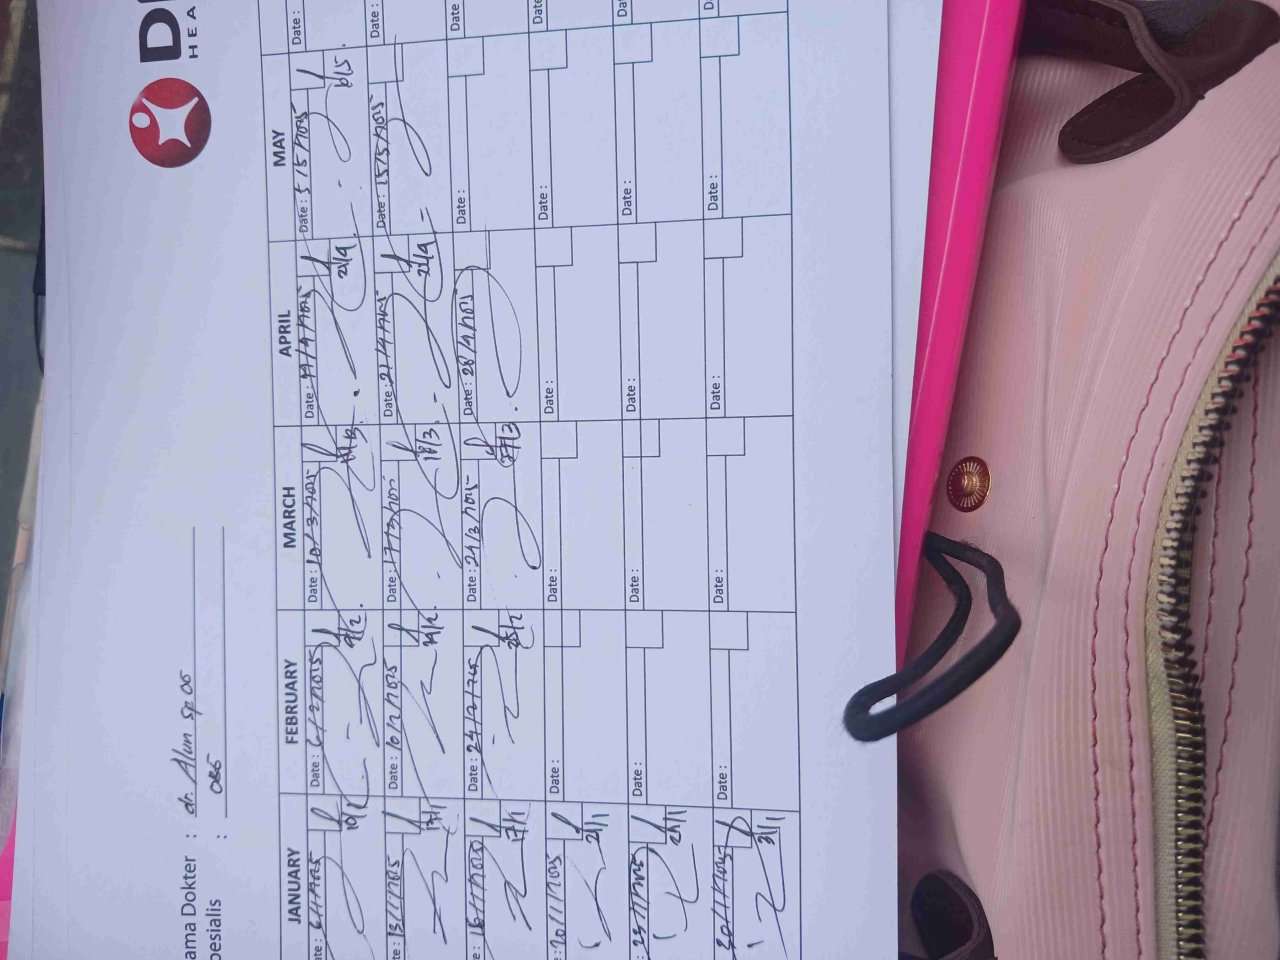 D
HEA
ama Dokter : dr. Alun Sp OG
pesialis : OBG
JANUARY FEBRUARY MARCH APRIL MAY
te: 6/1/2025 Date : 6/2/2025 Date : 10/3/2025 Date : Date : 5/5/2025 Date :
10/1 9/2. 21/4 6/5.
te: 13/1/2025 Date : 10/2/2025 Date : 17/3/2025 Date : 21/4/2025 Date : 15/5/2025 Date :
17/1 14/2. 18/3. 21/4
e: 16/1/2025 Date : 24/2/2025 Date : 24/3/2025 Date : 28/4/2025 Date : Date
17/1 25/2 27/3
: 20/1/2025 Date : Date : Date : Date : Date
21/1
: 23/1/2025 Date : Date : Date : Date : Da
24/1
30/1/2025 Date : Date : Date : Date : D
31/1